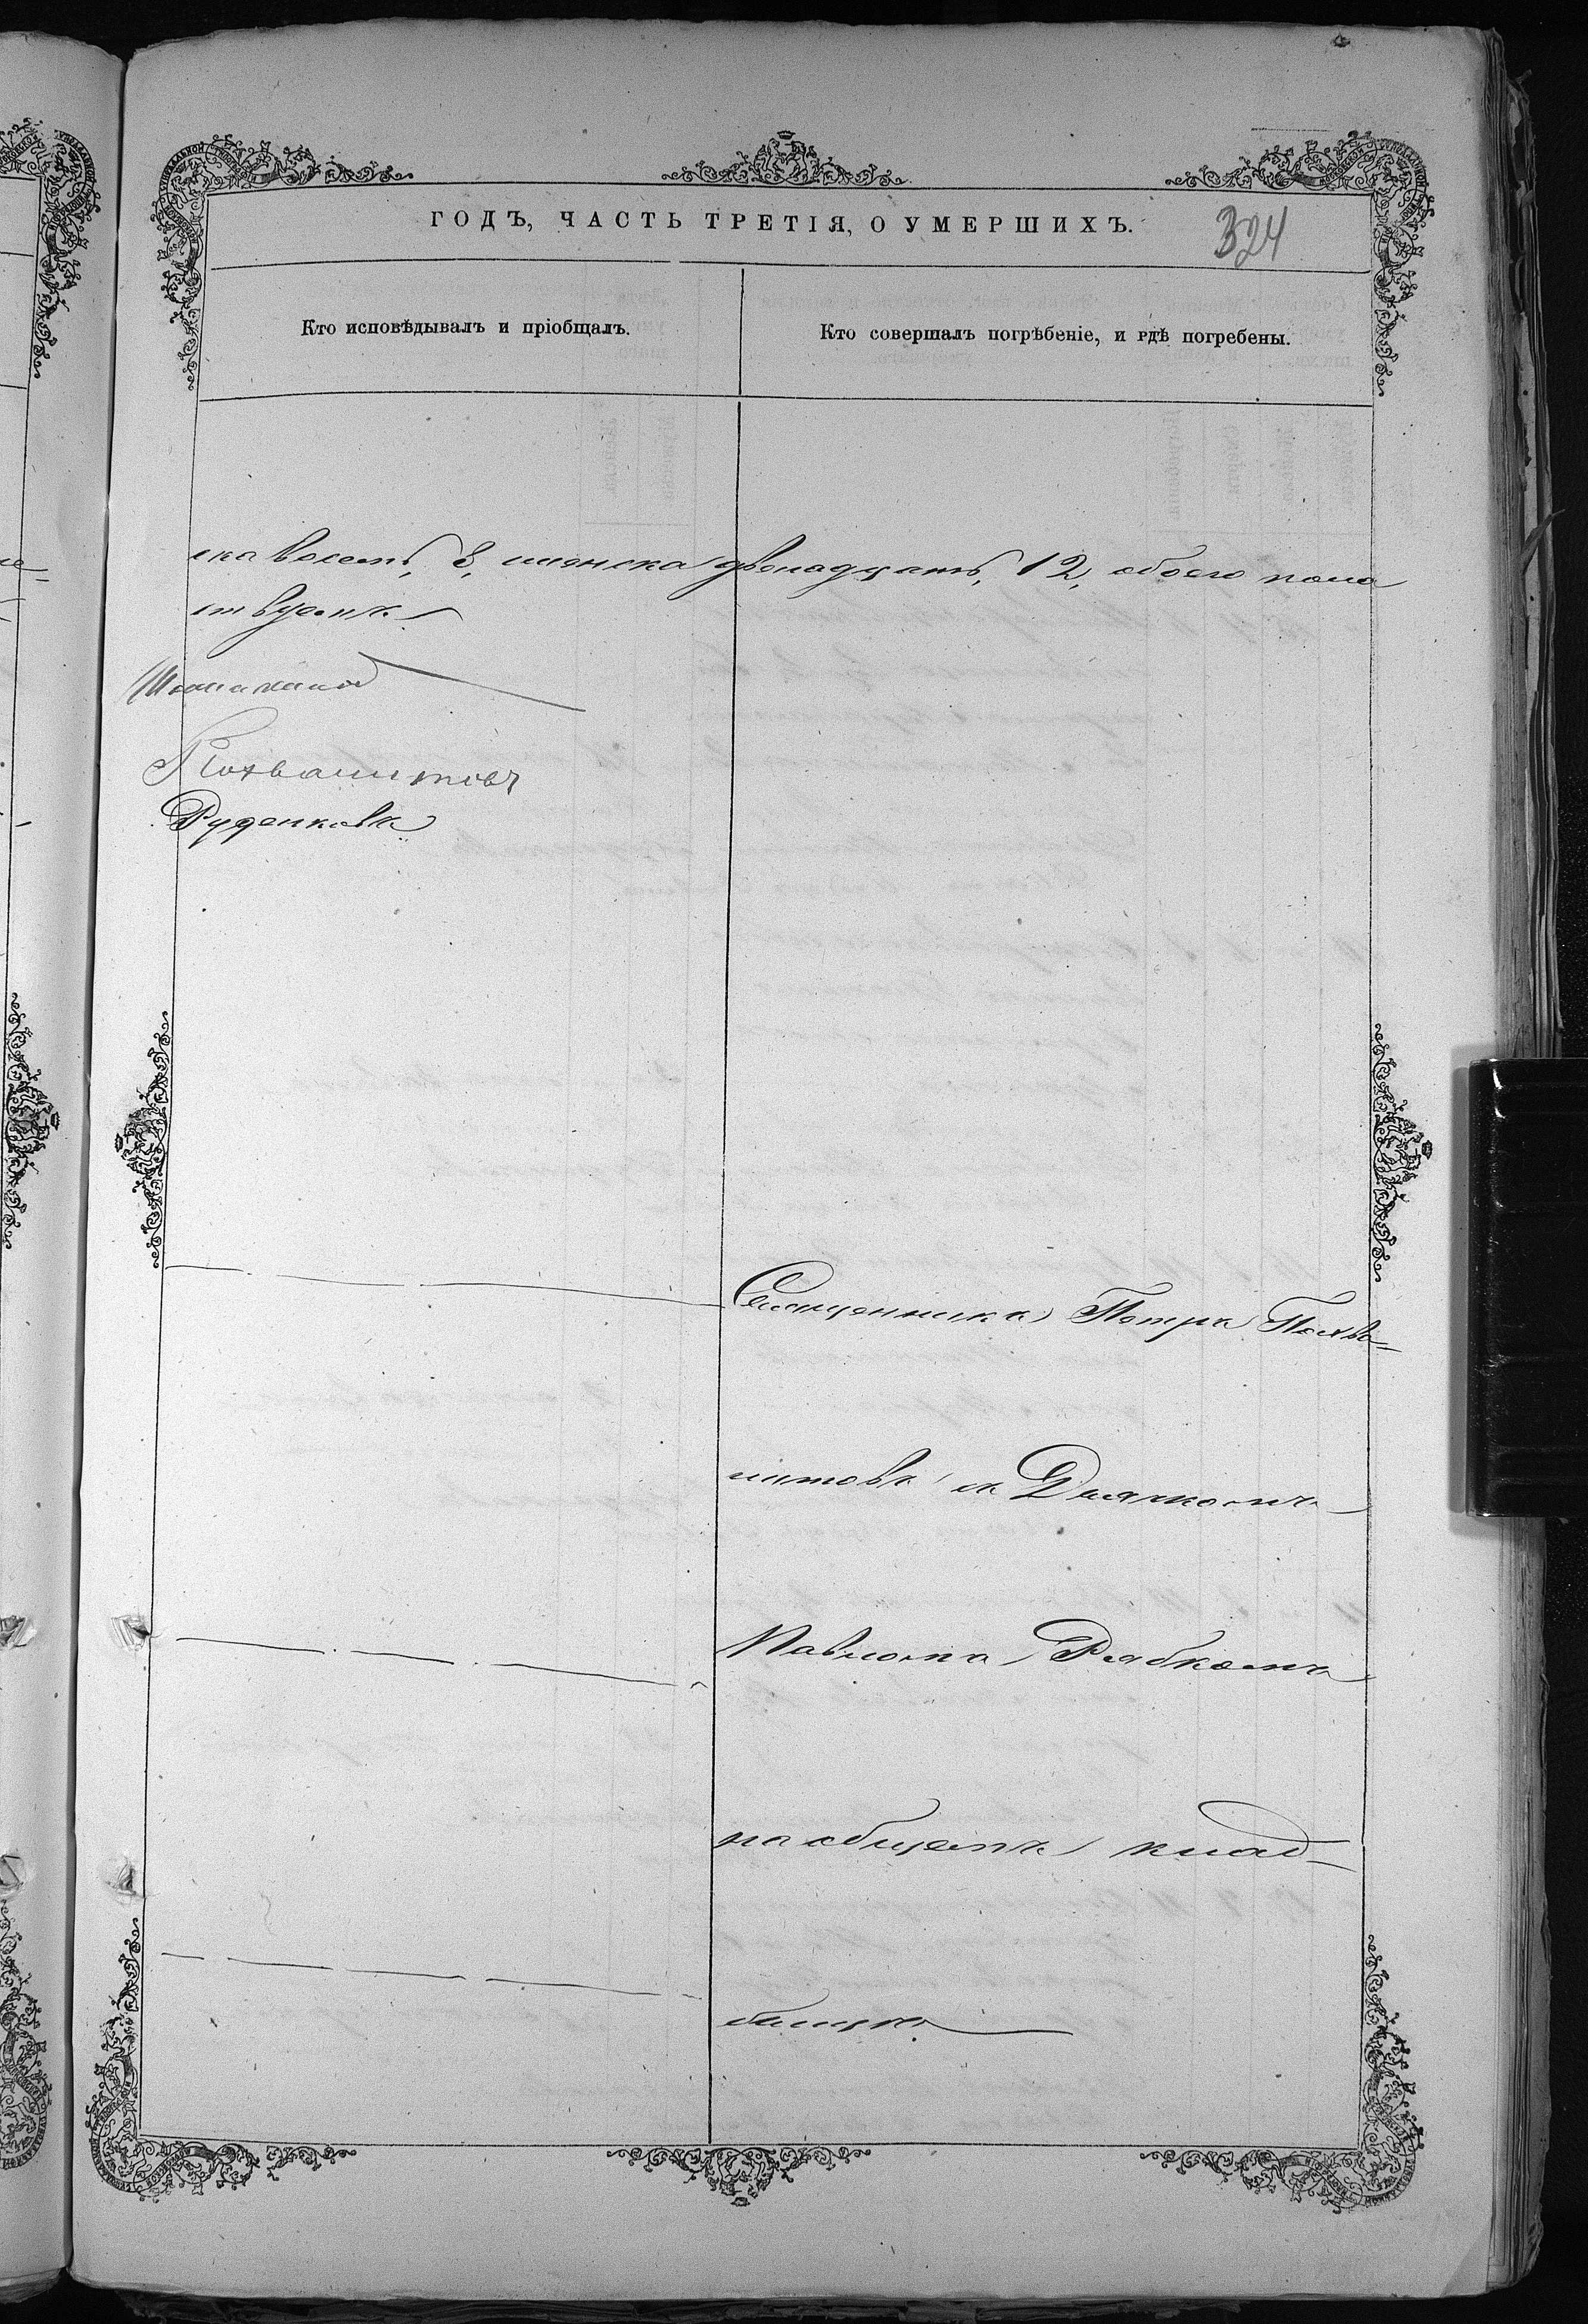 ГОДЪ, ЧАСТЬ ТРЕТІЯ, О УМЕРШИХЪ.
324
Кто исповѣдывалъ и пріобщалъ.
Кто совершалъ погрѣбеніе, и гдѣ погребены.
ска восемь, 8, женска двенадцать, 12, обоего пола
ствуемъ
Похвалитовъ
Руденковъ
Священникъ Петръ Похва-
литовъ съ Дьячкомъ
Павломъ Рябкомъ
на общемъ клад-
бищѣ